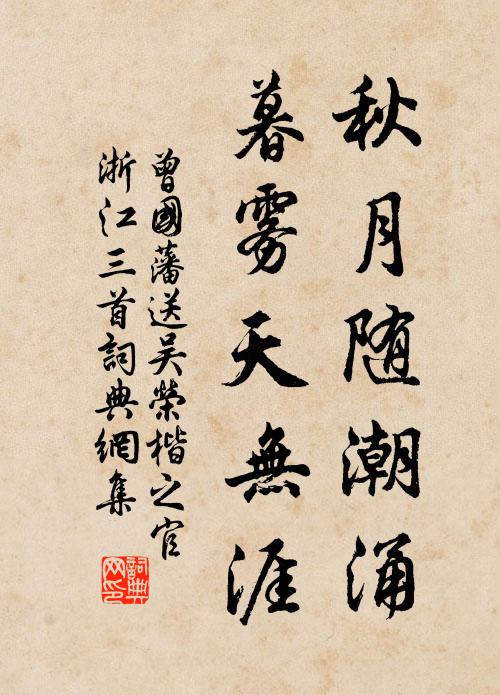 秋月随潮涌
暮雾天無涯
曾國藩送吴榮楷之官
浙江三首詞典網集
詞典
网印